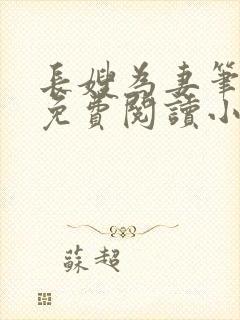 長嫂為妻筆
免費閱讀小
蘇超